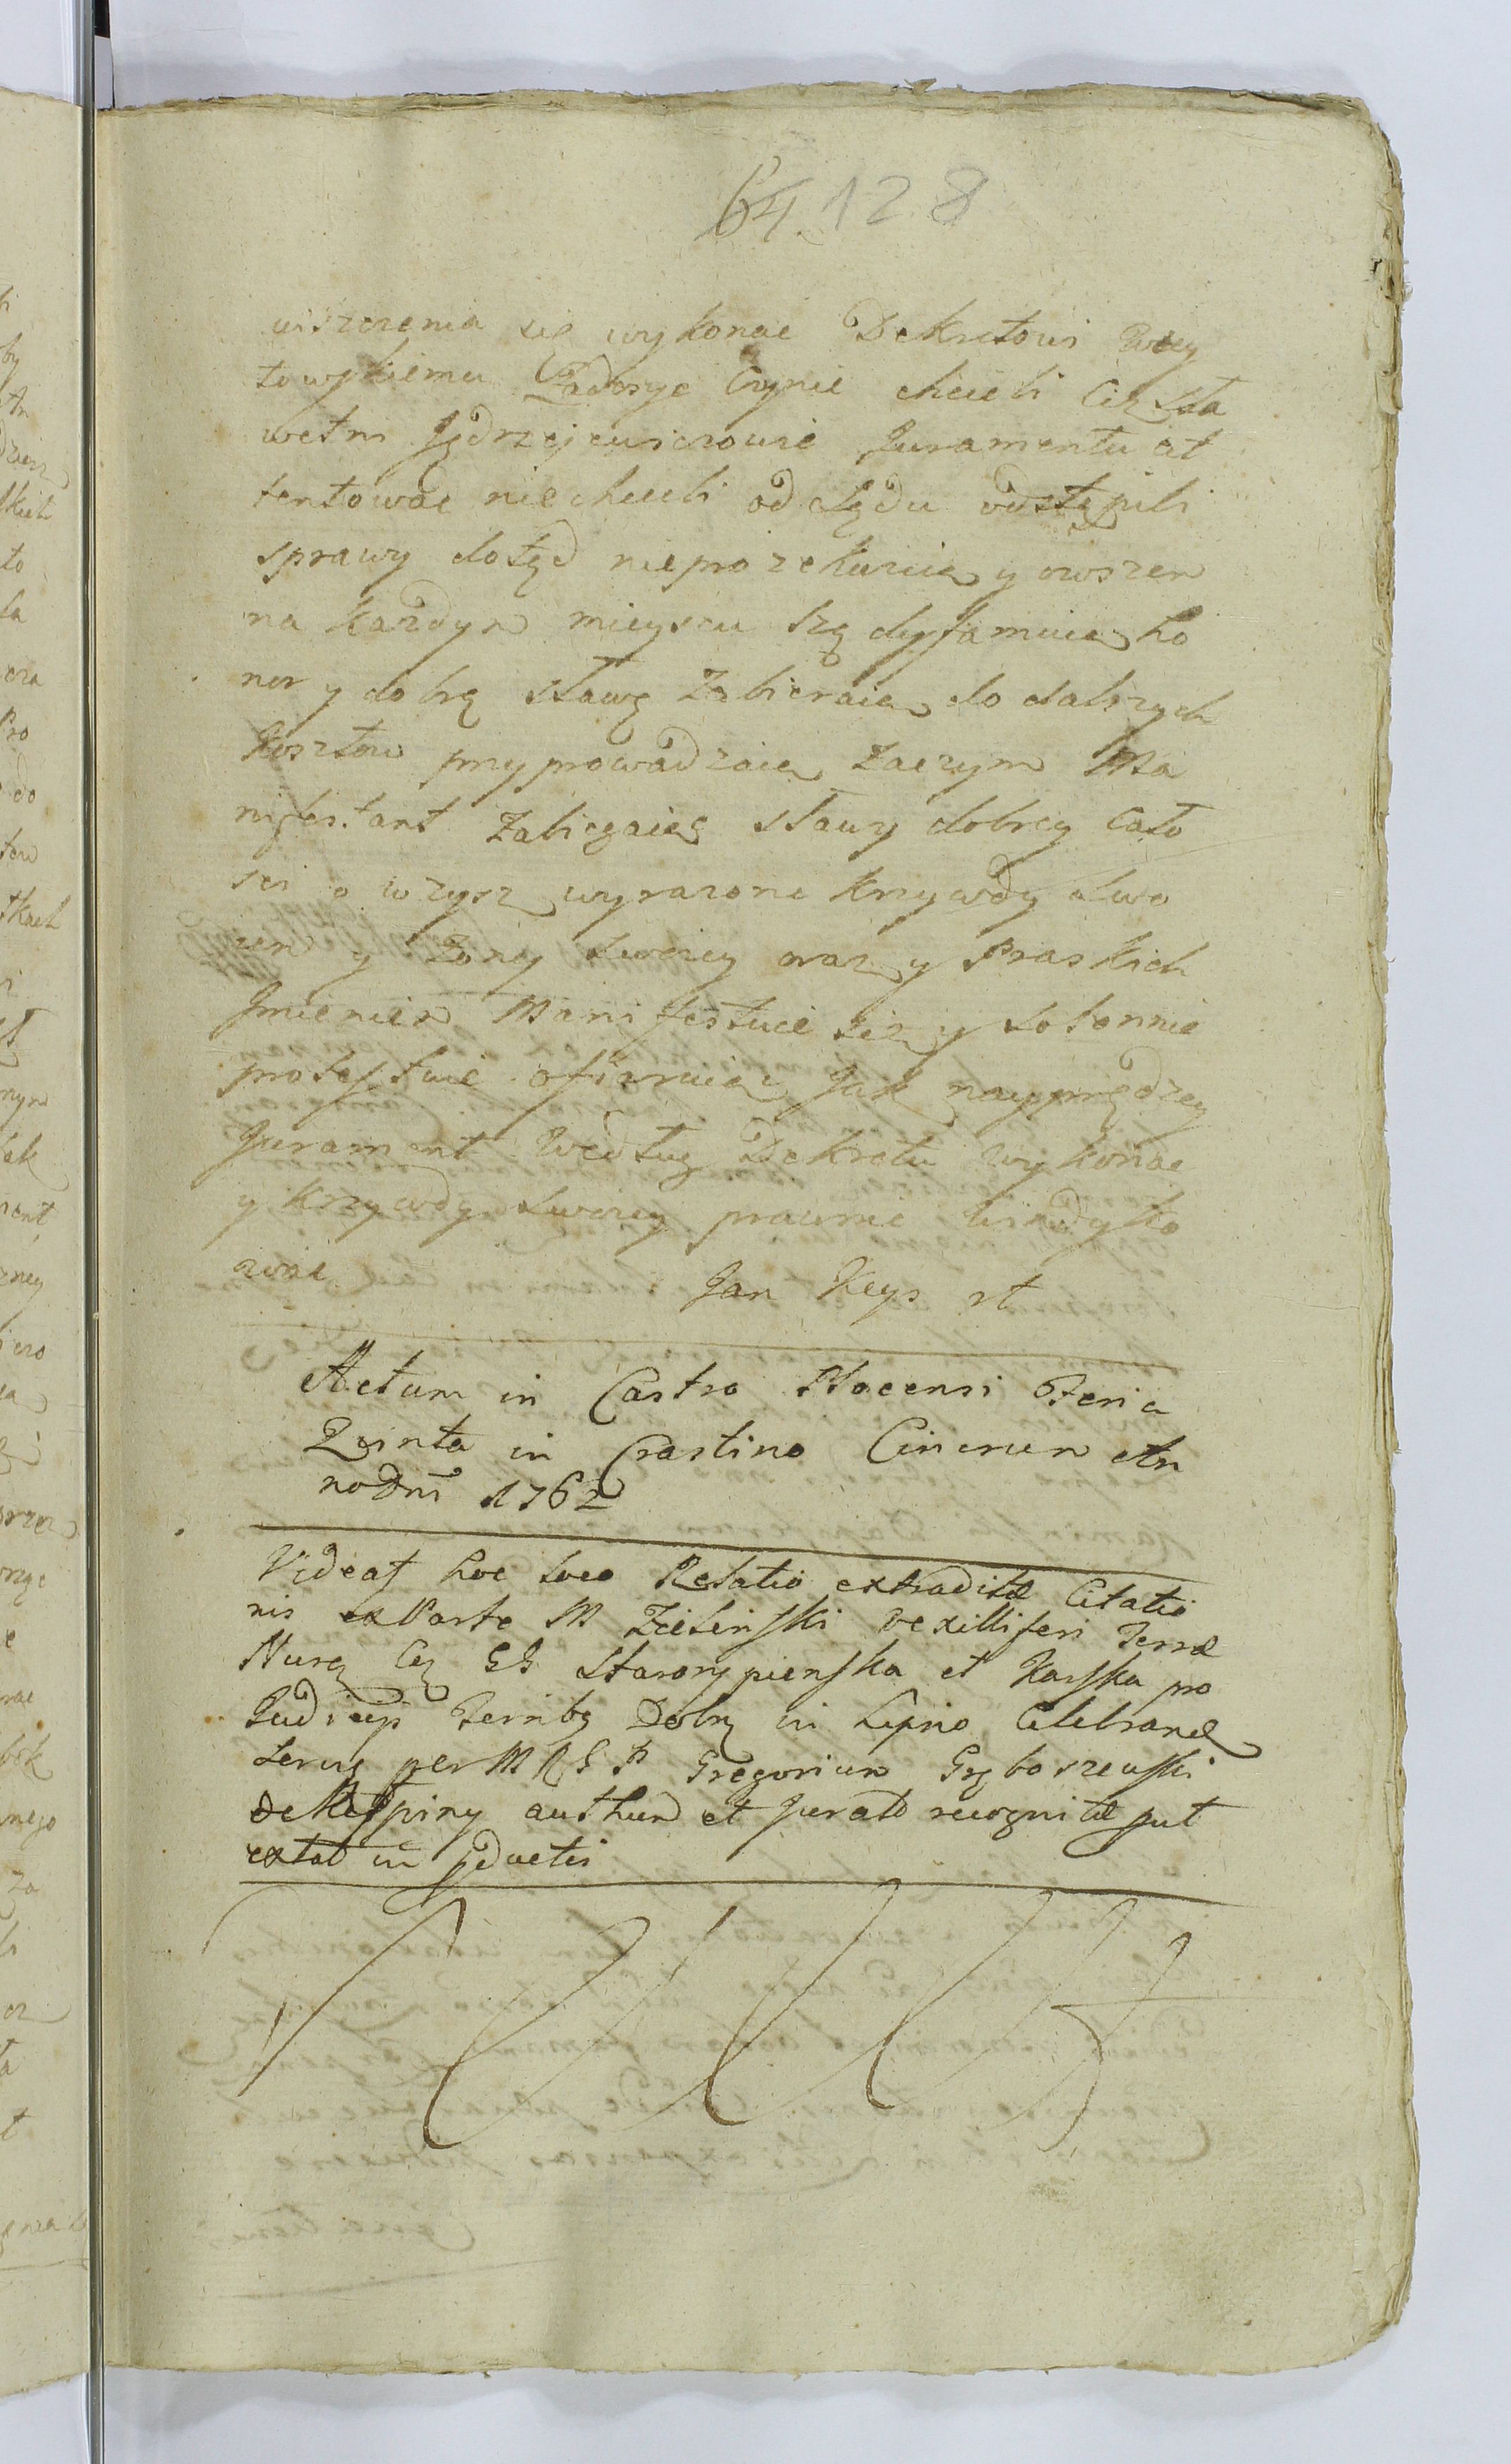 64. 128
uiszczenia się wykonać Dekretowi Woy
towskiemu Zadosyc Czynic chcieli Ciz Sła
wetni Jędrzejewiczowie Juramentu at
tentowac niechcieli od Sądu odstąpili
sprawy dotąd nieprozekwuią y owszem
na każdym mieyscu Szę dyffamuią ho
nor y dobrą sławę Zabieraią do dalszych
kosztow przyprowadzaią Zaczym Ma
nifestant Zabiegaiąc sławy dobrey Cało
sci o wzysz wyrazone krzywdy Swo
im y Zony Swoiey oraz y Praskich
Jmieniem Manifestuie się y Solennie
protestuie ofiaruiąc Jak nayprędzey
Jurament Według Dekretu Wykonac
y krzywdy Swoiey prawnie windyko
wac
Jan Keys st
Actum in Castro Plocensi Feria
Quinta in Crastino Cinerum An
no Dni 1762
Videat hoc loco Relatio extraditæ Citatio
nis ex Parte M Zielinski Vexilliferi Terræ
Nurę Cz GG Starorypienska et Karska pro
Judicijs Terribg Dobrz in Lipno Celebrand
per M R G P Gregorium Grzboszewski
authen et Jurato recognitæ put
extat in